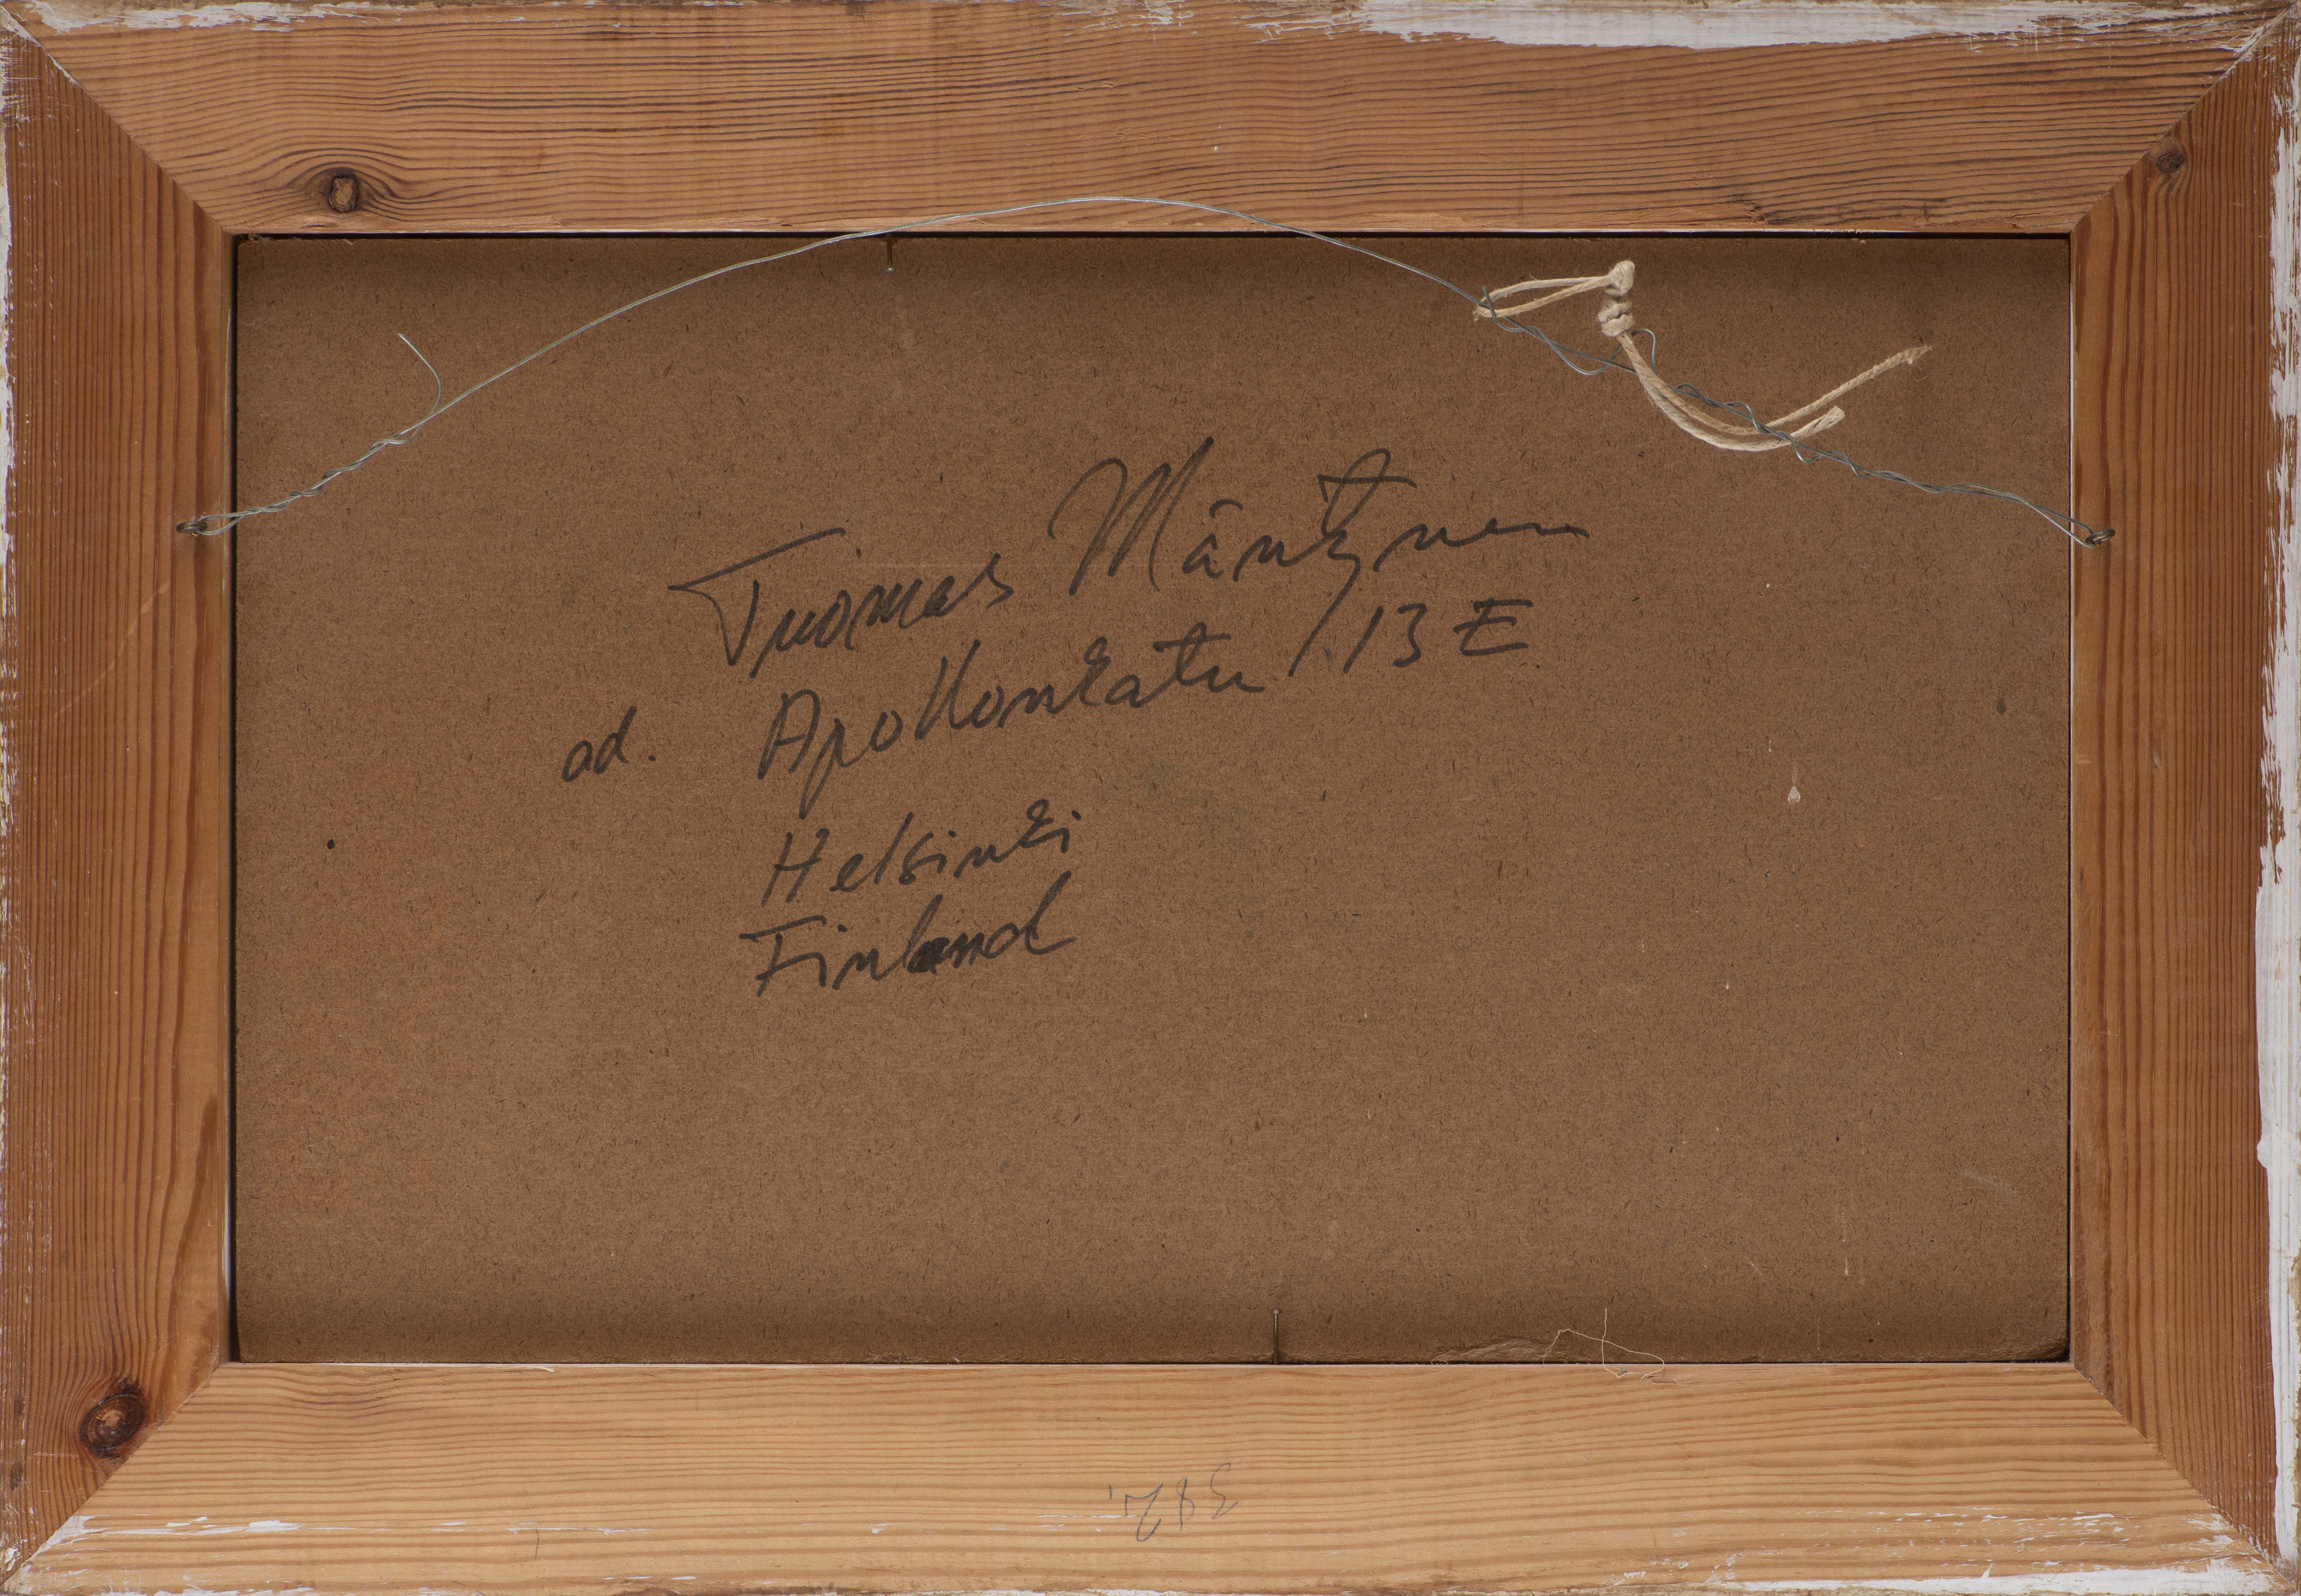 Tuomas Mäntynen
ad. Apollonkatu 13 E
Helsinki
Finland